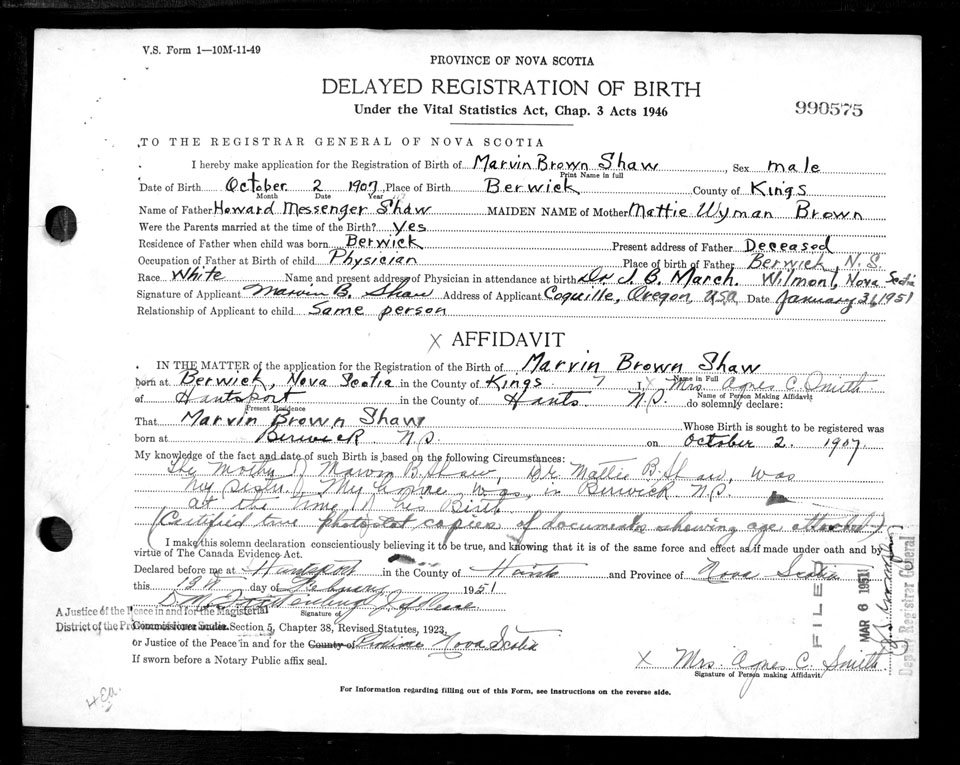 V.S. Form 1—10M-11-49
PROVINCE OF NOVA SCOTIA
DELAYED REGISTRATION OF BIRTH
Under the Vital Statistics Act, Chap. 3 Acts 1946
990575
TO THE REGISTRAR GENERAL OF NOVA SCOTIA
I hereby make application for the Registration of Birth of Marvin Brown Shaw, Sex male
Print Name in full
Date of Birth October 2 1907, Place of Birth Berwick County of Kings
Month Date Year
Name of Father Howard Messenger Shaw MAIDEN NAME of Mother Mattie Wyman Brown
Were the Parents married at the time of the Birth? Yes
Residence of Father when child was born Berwick Present address of Father Deceased
Occupation of Father at Birth of child Physician Place of birth of Father Berwick N.S.
Race White Name and present address of Physician in attendance at birth Dr. J. B. March. Wilmont, Nova Scotia
Signature of Applicant Marvin B. Shaw Address of Applicant Coquille, Oregon, USA Date January 31, 1951
Relationship of Applicant to child Same person
X AFFIDAVIT
IN THE MATTER of the application for the Registration of the Birth of Marvin Brown Shaw
Name in Full
born at Berwick, Nova Scotia in the County of Kings I, X Mrs. Agnes C. Smith
Name of Person Making Affidavit
of Hantsport in the County of Hants N.S. do solemnly declare:
Present Residence
That Marvin Brown Shaw Whose Birth is sought to be registered was
born at Berwick N.S. on October 2. 1907.
My knowledge of the fact and date of such Birth is based on the following Circumstances:
The Mother of Marvin B. Shaw, Dr Mattie B. Shaw, was
my sister. My home was in Berwick N.S.
at the time of his Birth
(Certified true photostat copies of documents showing age attached)
I make this solemn declaration conscientiously believing it to be true, and knowing that it is of the same force and effect as if made under oath and by
virtue of The Canada Evidence Act.
Declared before me at Hantsport in the County of Hants and Province of Nova Scotia
this 12th day of February 1951
A Justice of the Peace in and for the Magisterial Signature of
District of the Commissioner under Section 5, Chapter 38, Revised Statutes, 1923,
or Justice of the Peace in and for the County of Province Nova Scotia
If sworn before a Notary Public affix seal.
X Mrs. Agnes C. Smith
Signature of Person making Affidavit
For Information regarding filling out of this Form, see instructions on the reverse side.
FILED
MAR 6 1951
Deputy Registrar General